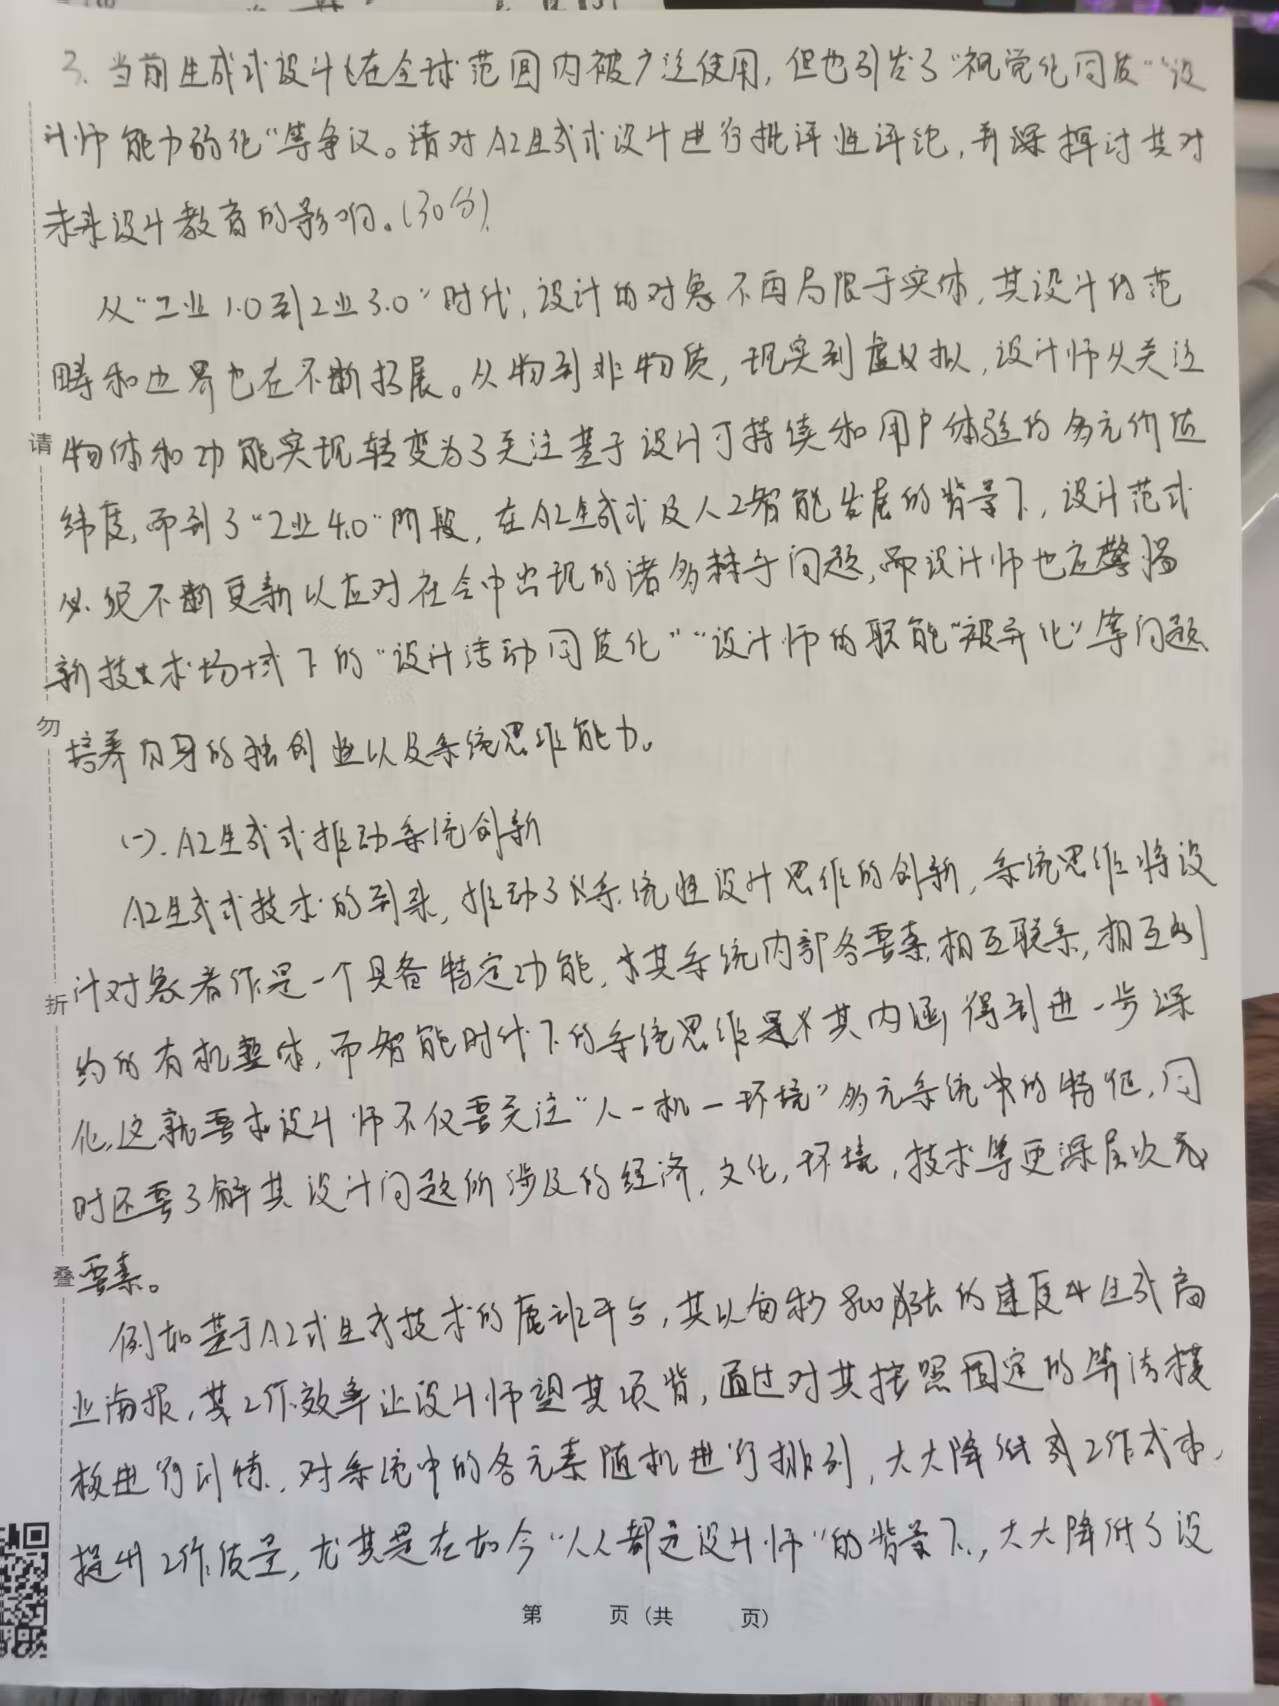 3. 当前生成式设计在全球范围内被广泛使用，但也引发了“视觉化同质”“设
计师能力弱化“等争议。请对AI生成式设计进行批评性评论，并深探讨其对
未来设计教育的影响。(30分)
从“工业1.0到工业3.0“时代，设计的对象不再局限于实体，其设计的范
畴和边界也在不断拓展。从物到非物质，现实到虚拟，设计师从关注
请 物体和功能实现转变为了关注基于设计可持续和用户体验的多元价值
纬度，而到了“工业4.0“阶段，在AI生成式及人工智能发展的背景下，设计范式
必须不断更新以应对社会中出现的诸多棘手问题，而设计师也应警惕
新技术场域下的“设计活动同质化”“设计师的职能“被弃化”等问题
勿 培养自身的独创性以及系统思维能力。
(一). AI生成式推动系统创新
AI生成式技术的到来，推动了系统性设计思维的创新，系统思维将设
折 计对象看作是一个具备特定功能，其系统内部各要素相互联系，相互制
约的有机整体，而智能时代下的系统思维是其内涵得到进一步深
化，这就要求设计师不仅要关注“人一机一环境”多元系统中的特征，同
时还要了解其设计问题所涉及的经济，文化，环境，技术等更深层次
叠 要素。
例如基于AI式生成技术的鹿班平台，其以每秒8000张的速度生成商
业海报，其工作效率让设计师望其项背，通过对其按照固定的算法模
板进行训练，对系统中的各元素随机进行排列，大大降低工作成本，
提升工作质量，尤其是在如今“人人都是设计师“的背景下，大大降低了设
第 页(共 页)